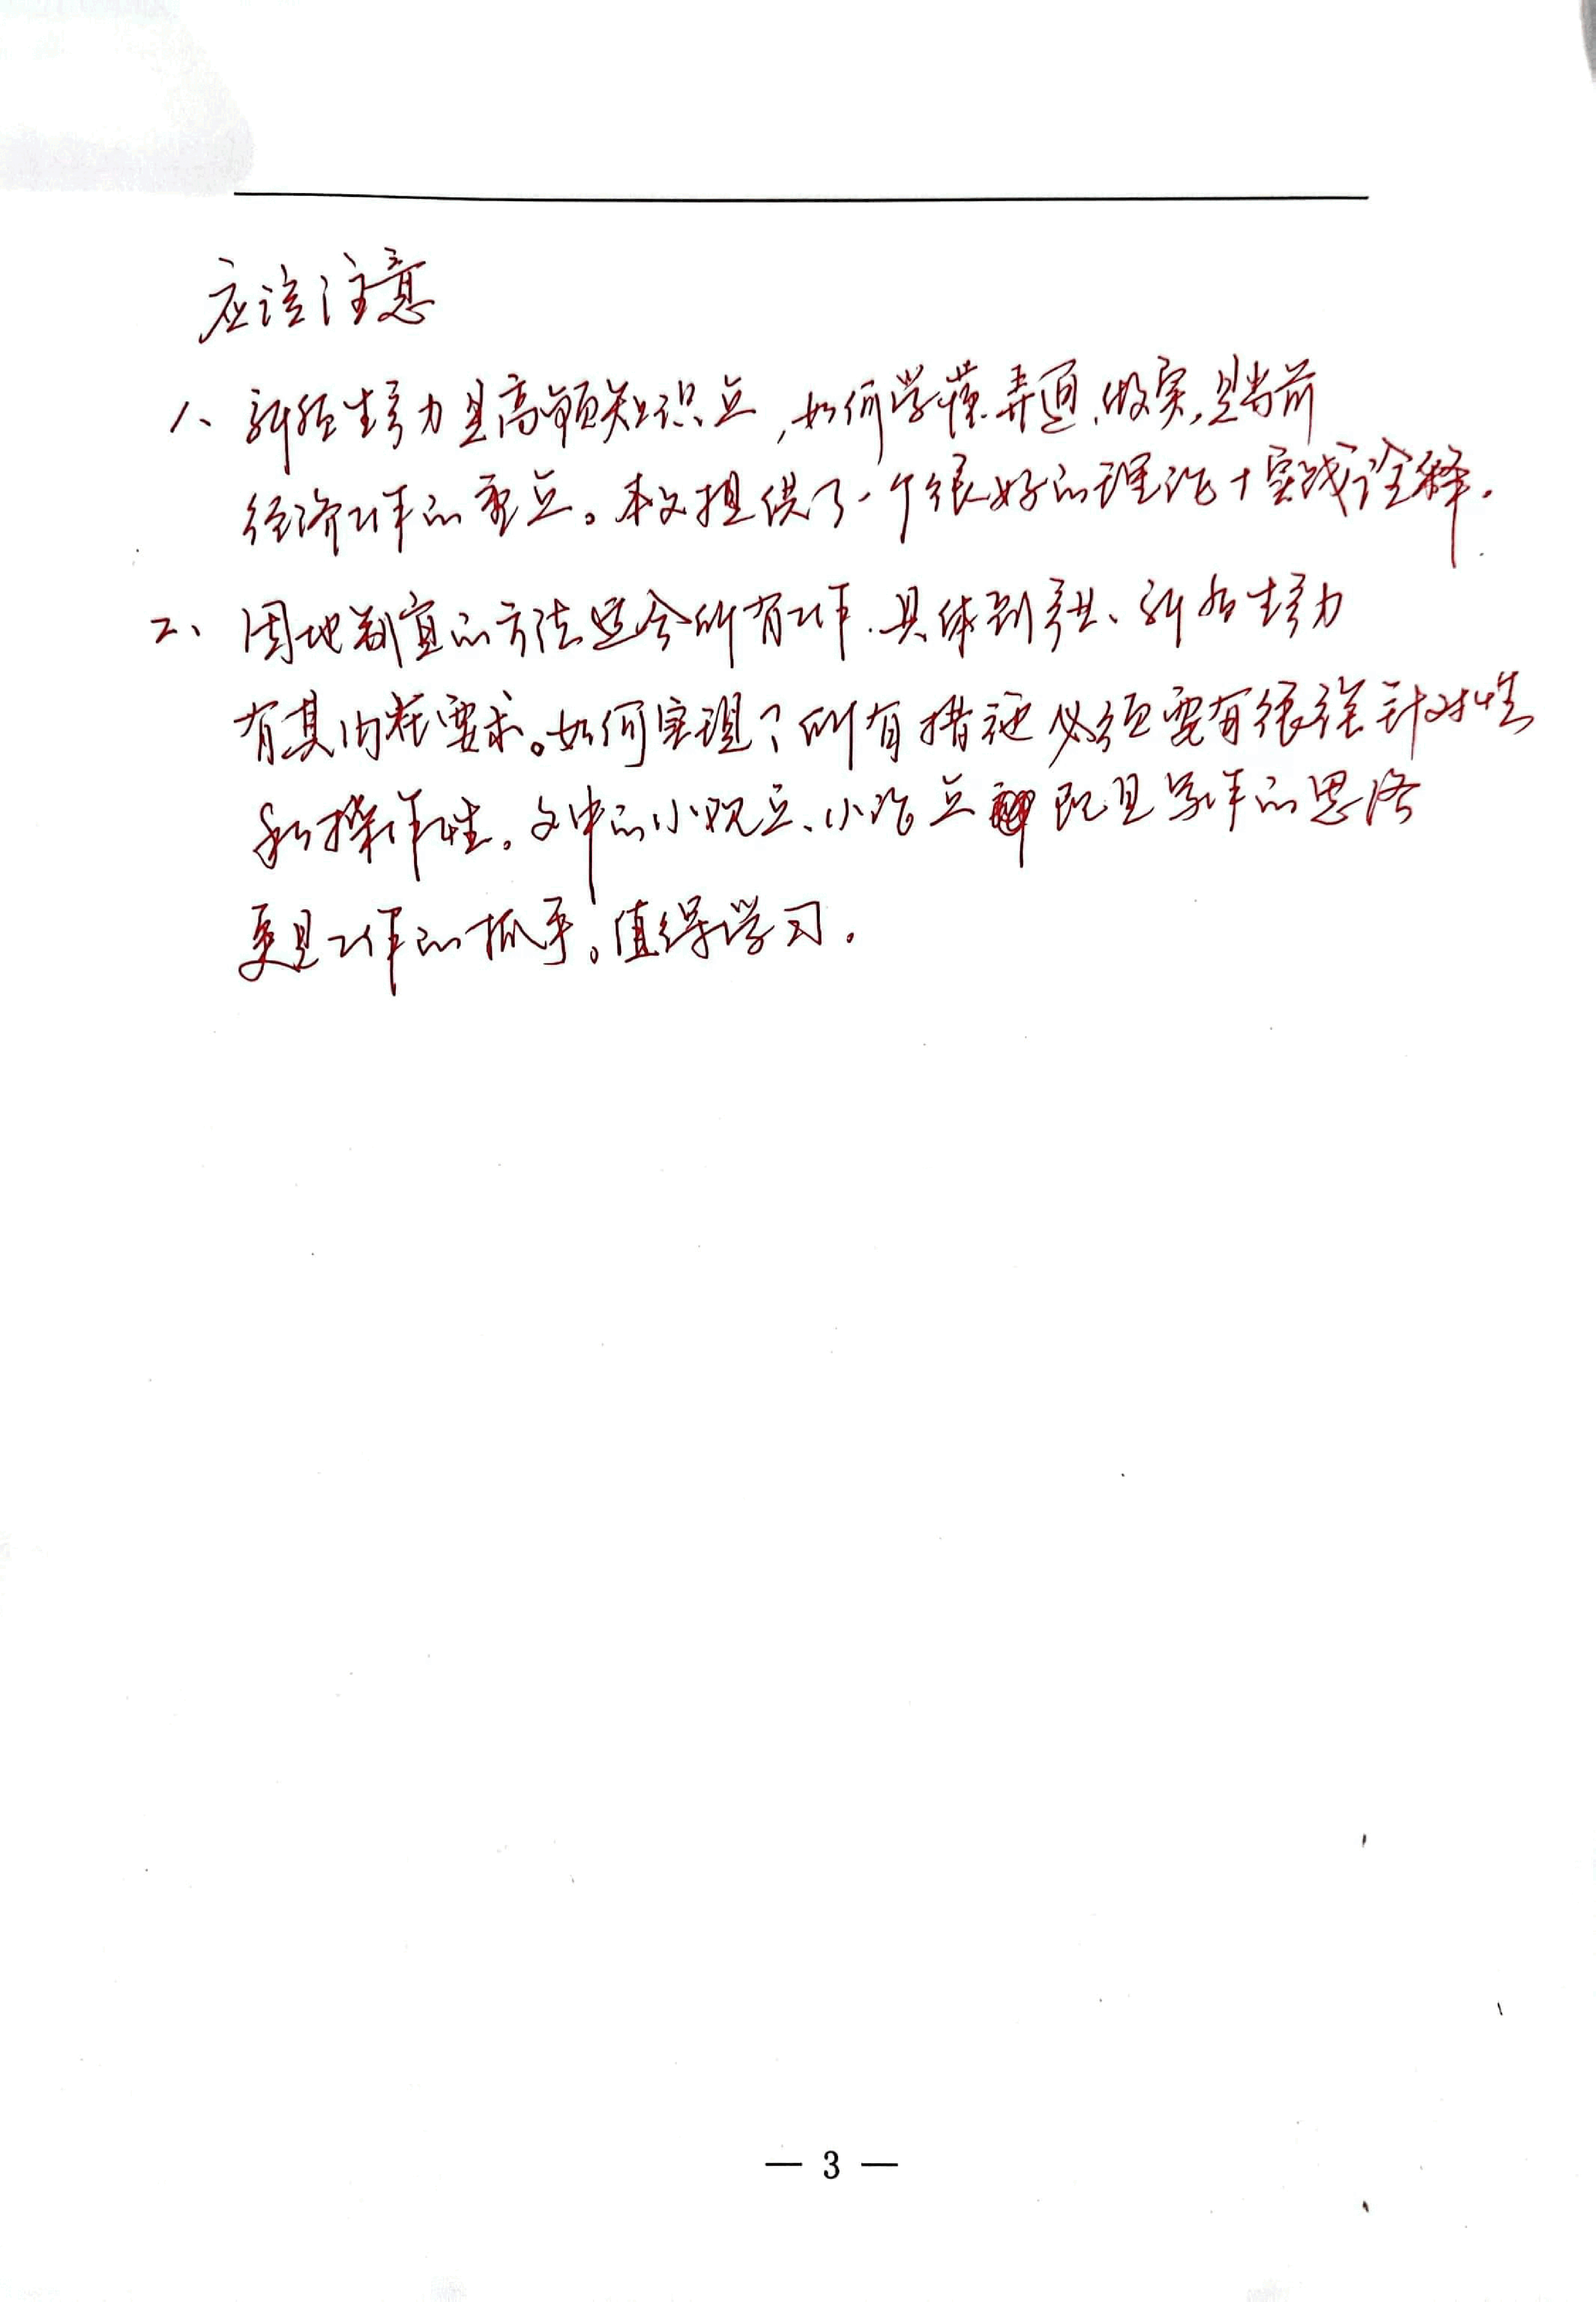 应该注意
1、新质生产力是高频知识点，如何学懂、弄通、做实，是当前
经济工作的重点。本文提供了一个很好的理论+实践诠释.
2、因地制宜的方法适合所有工作.具体到产业、新质生产力
有其内在要求。如何实现？所有措施必须要有很强针对性
和操作性。文中的小观点、小论点 既是写作的思路
更是工作的抓手。值得学习.
— 3 —